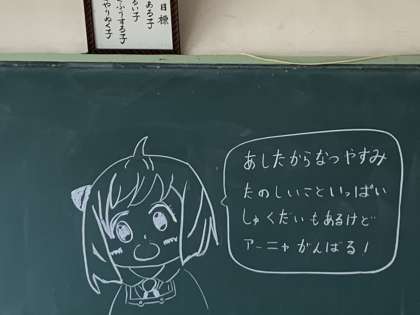 目標
ある子
るい子
ふうする子
やりぬく子
あしたからなつやすみ
たのしいこといっぱい
しゅくだいもあるけど
アーニャがんばる!